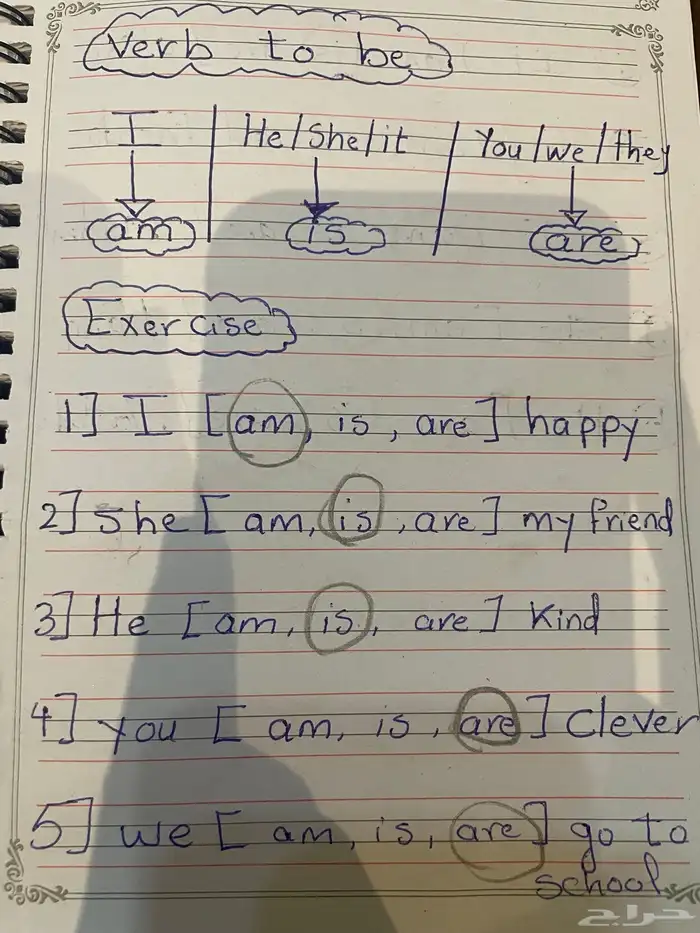 Verb to be
I | He/She/it | You/we/they
am | is | are
Exercise
1] I [am, is, are] happy
2] She [am, is, are] my friend
3] He [am, is, are] Kind
4] you [am, is, are] Clever
5] we [am, is, are] go to
school
حراج